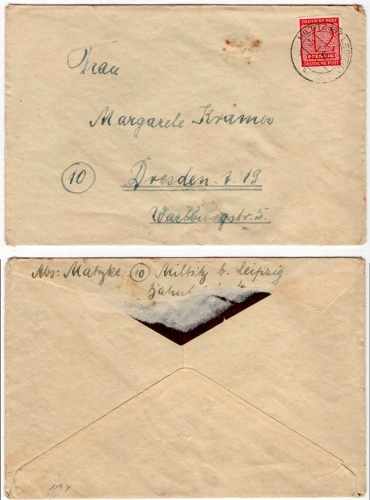 DEUTSCHE POST
12
PFENNIG
DEUTSCHE POST
Frau
Margarete Krämer
10 Dresden A. 19
Wartburgstr. 5.
Abs: Matzke, 10 Miltitz b. Leipzig
119 Y